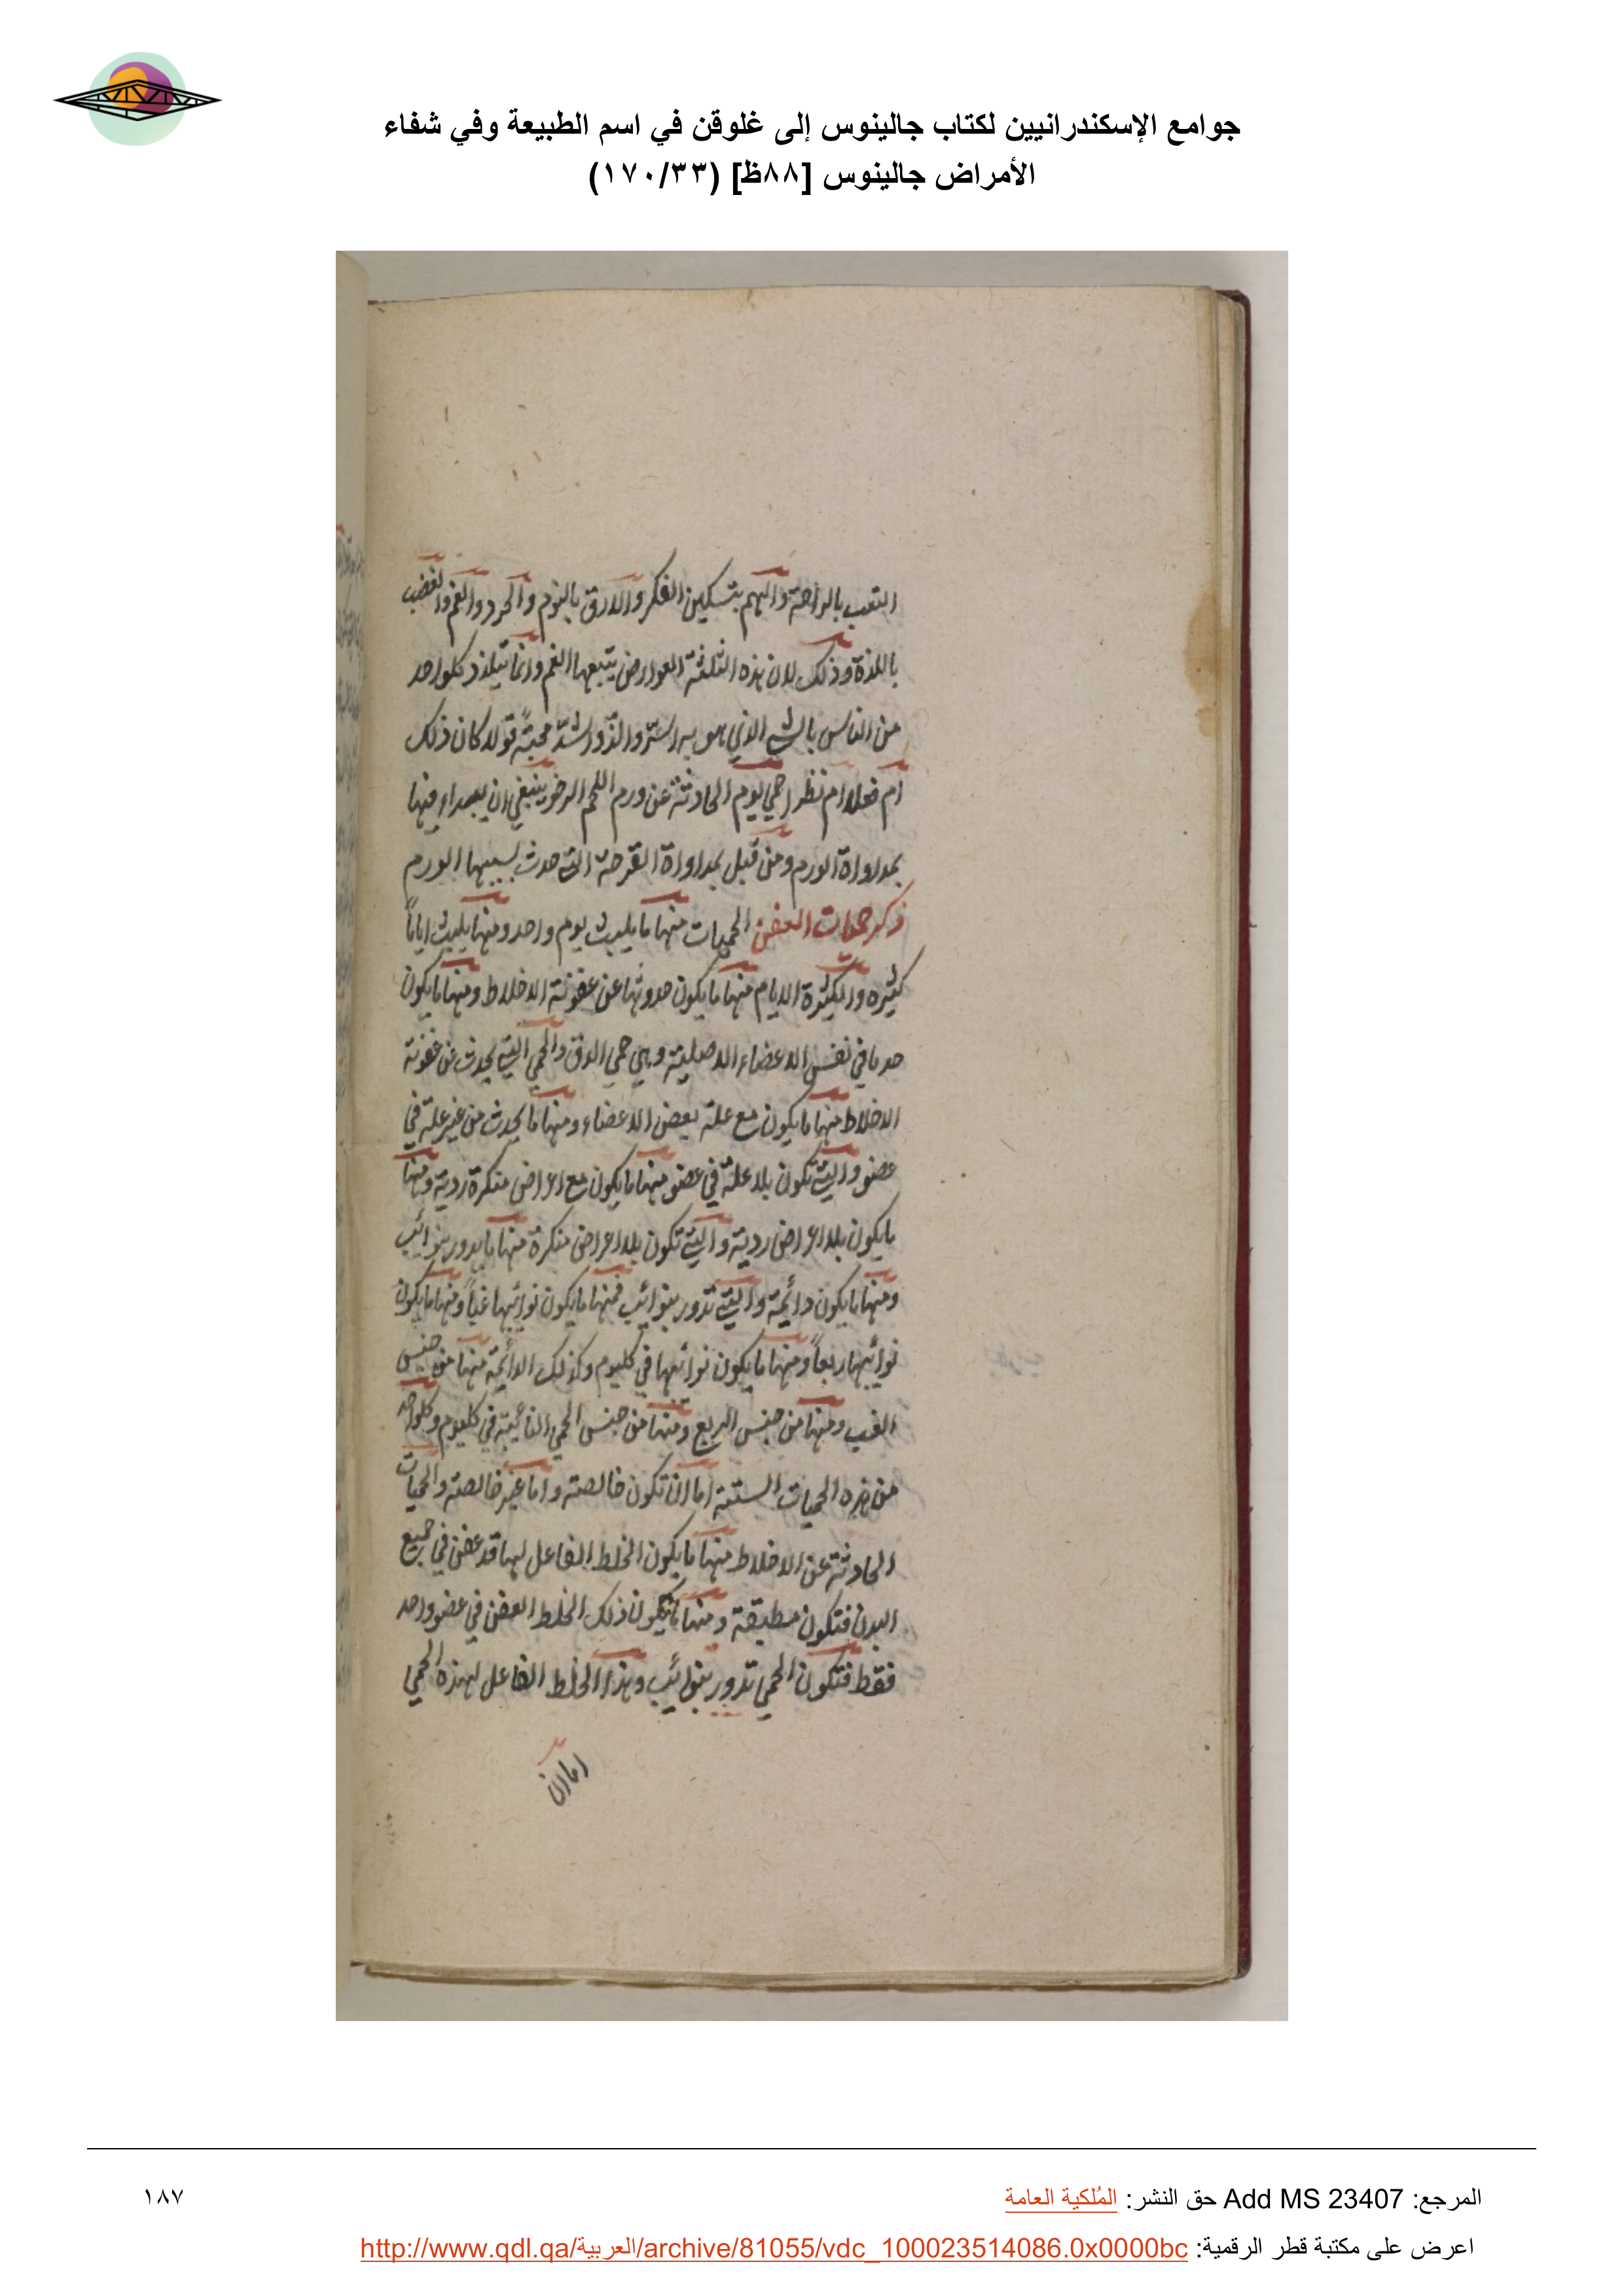 جوامع الإسكندرانيين لكتاب جالينوس إلى غلوقن في اسم الطبيعة وفي شفاء
الأمراض جالينوس [٨٨ظ] (١٧٠/٣٣)
التعب بالراحة والهم بتسكين الفكر والارق بالنوم والحرد والغم والغضب
باللذة وذلك لان هذه الثلثة العوارض يتبعها الغم وانما يتلذذ كلواحد
من الناس بالشي الذي هو به اسر والذ واشد محبة قولا كان ذلك
ام فعلا ام نظرا حمي يوم الحادثة عن ورم اللحم الرخو ينبغي ان فيها
بمداواة الورم ومن قبل بمداواة القرحة التي حدث بسببها الورم
ذكر حميات العفن الحميات منها ما يلبث يوم واحد ومنها يلبث اياما
كثيره والكثيرة الايام منها ما يكون حدوثها عن عفونة الاخلاط ومنها ما يكون
في نفس الاعضاء الاصلية وهي حمي الدق والحمي التي يحدث عن عفونة
الاخلاط منها ما يكون مع علة بعض الاعضاء ومنها ما يحدث من غير علة في
عضو والتي تكون بلا علة في عضو منها ما يكون مع اعراض منكرة ردية ومنها
ما يكون بلا اعراض ردية والتي تكون بلا اعراض منكرة منها ما يدور بنوائب
ومنها ما يكون دائمة والتي تدور بنوائب فمنها ما يكون نوائبها غبا ومنها ما يكون
نوائبها ربعا ومنها ما يكون نوائبها في كليوم وكذلك الدائمة منها من جنس
الغب ومنها من جنس الربع ومنها من جنس الحمي النائبة في كليوم وكلواحد
من هذه الحميات الستة اما ان تكون خالصة واما غير خالصة والحميات
الحادثة عن الاخلاط منها ما يكون الخلط الفاعل لها قد عفن في جميع
البدن فتكون مطبقة ومنها ما يكون ذلك الخلط العفن في عضو واحد
فقط فتكون الحمي تدور بنوائب وهذا الخلط الفاعل لهذه الحمي
اما ان
المرجع: Add MS 23407 حق النشر: المُلكية العامة
١٨٧
اعرض على مكتبة قطر الرقمية: http://www.qdl.qa/العربية/archive/81055/vdc_100023514086.0x0000bc